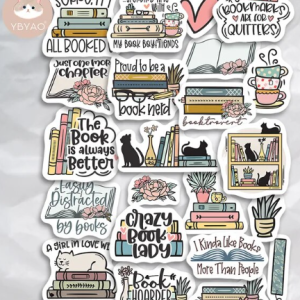 YBYAO
ALL BOOKED
My Book Boyfriends
Bookmarks
ARE FOR
QUITTERS
Just one more
Chapter
Proud to be a
book nerd
booktrovert
The
Book
is always
Better
Easily
Distracted
by books
Crazy
Book
LADY
A GIRL IN LOVE WI
Book
HOARDER
I Kinda Like Books
More Than People